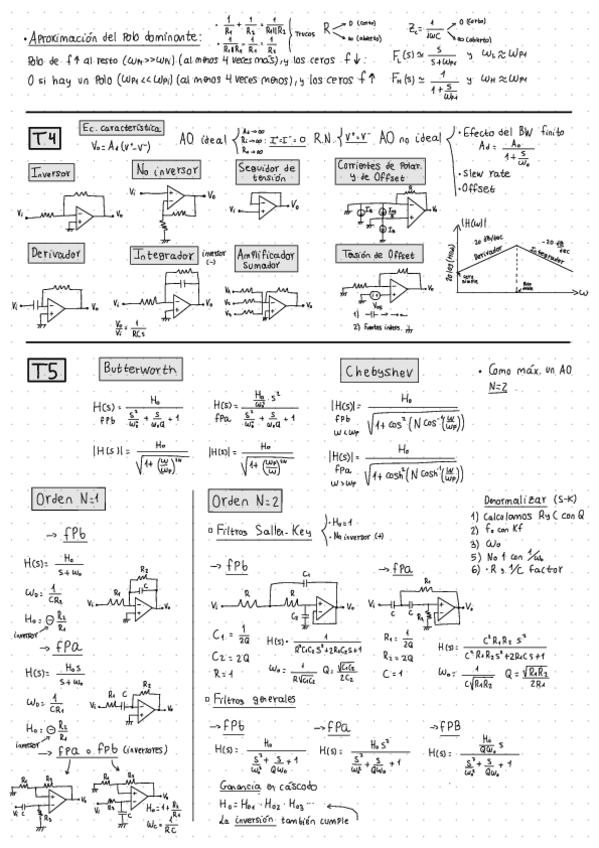 · Aproximación del Polo dominante:
· 1/R1 + 1/R2 = 1/(R1||R2)
Trucos R → 0 (corto) ∞ (abierto)
Zc = 1/jωC 0 (corto) ∞ (abierto)
Polo de f↑ al resto (ωP1>>ωPi) (al menos 4 veces más), y los ceros f↓:
FL(s) ≈ s/(s+ωP1) y ωL ≈ ωP1
O si hay un Polo (ωP1<<ωPi) (al menos 4 veces menos), y los ceros f↑
FH(s) ≈ 1/(1+s/ωP1) y ωH ≈ ωP1
T4
Ec. característica
Vo = Ad (V⁺-V⁻)
AO ideal { Ad→∞ Ri→∞ : I⁺=I⁻=0 Ro→0
R.N. { V⁺=V⁻
AO no ideal
· Efecto del BW finito
Ad = Ao/(1+s/ωo)
· Slew rate
· Offset
Inversor
No inversor
Seguidor de tensión
Corrientes de Polar. y de Offset
Derivador
Integrador inversor (-)
Amplificador sumador
Tensión de Offset
Vo/Vi = 1/RCs
Vos
2) Fuentes inters.
|H(ω)|
20 log (H(ω))
20 dB/dec
Derivador
-20 dB/dec
Integrador
ω
T5
Butterworth
Chebyshev
· Como máx. un AO
N=2
H(s) = Ho/(s²/ωo² + s/ωoQ + 1)
fPb
H(s) = (Ho/ωo² · s²)/(s²/ωo² + s/ωoQ + 1)
fPa
|H(s)| = Ho/√(1+cos²(N cos⁻¹(ω/ωP)))
fPb
ω<ωP
|H(s)| = Ho/√(1+(ω/ωP)²ᴺ)
|H(s)| = Ho/√(1+(ωP/ω)²ᴺ)
|H(s)| = Ho/√(1+cosh²(N cosh⁻¹(ω/ωP)))
fPa
ω>ωP
Orden N=1
→ fPb
H(s) = Ho/(s+ωo)
ωo = 1/CR2
Ho = ⊖ R2/R1
inversor
→ fPa
H(s) = Ho s/(s+ωo)
ωo = 1/CR1
Ho = ⊖ R2/R1
inversor
→ fPa o fPb (inversores)
Ho = 1+ R2/R1
ωc = 1/RC
Orden N=2
▫ Filtros Sallen-Key { · Ho=1 · No inversor (+)
→ fPb
→ fPa
C1 = 1/2Q
C2 = 2Q
R = 1
H(s) = 1/(R²C1C2s²+2RC2s+1)
ωo = 1/(R√C1C2) Q = √C1C2/2C2
R1 = 1/2Q
R2 = 2Q
C = 1
H(s) = C²R1R2s²/(C²R1R2s²+2R1Cs+1)
ωo = 1/(C√R1R2) Q = √R1R2/2R1
Denormalizar (S-K)
1) Calculamos R y C con Q
2) fo con Kf
3) ωo
5) No f con 1/ωo
6) · R s. 1/C factor
▫ Filtros generales
→ fPb
→ fPa
→ fPB
H(s) = Ho/(s²/ωo² + s/Qωo + 1)
H(s) = Ho s²/(s²/ωo² + s/Qωo + 1)
H(s) = (Ho/Qωo s)/(s²/ωo² + s/Qωo + 1)
Ganancia en cascodo
Ho = Ho1 · Ho2 · Ho3 ...
La inversión también cumple